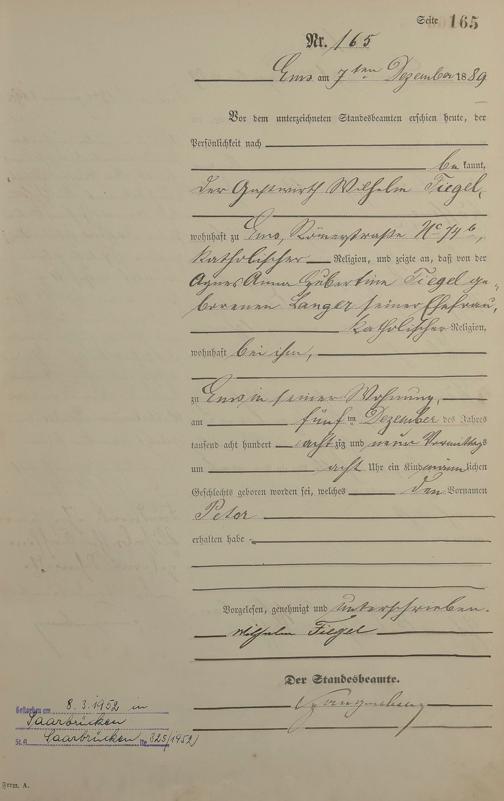 Seite 165
Nr. 165
Ems am 7ten Dezember 1889
Vor dem unterzeichneten Standesbeamten erschien heute, der
Persönlichkeit nach
bekannt,
der Gastwirth Wilhelm Fiegel,
wohnhaft zu Ems, Römerstraße No 74 b,
katholischer Religion, und zeigte an, daß von der
Agnes Anna Hubertine Fiegel ge-
borenen Langer seiner Ehefrau,
katholischer Religion,
wohnhaft bei ihm,
zu Ems in seiner Wohnung,
am fünften Dezember des Jahres
tausend acht hundert achtzig und neun Vormittags
um acht Uhr ein Kind männlichen
Geschlechts geboren worden sei, welches den Vornamen
Peter
erhalten habe
Vorgelesen, genehmigt und unterschrieben.
Wilhelm Fiegel
Der Standesbeamte.
Gestorben am 8.3.1952 in
Saarbrücken
St.A. Saarbrücken Nr. 325/1952)
Form. A.